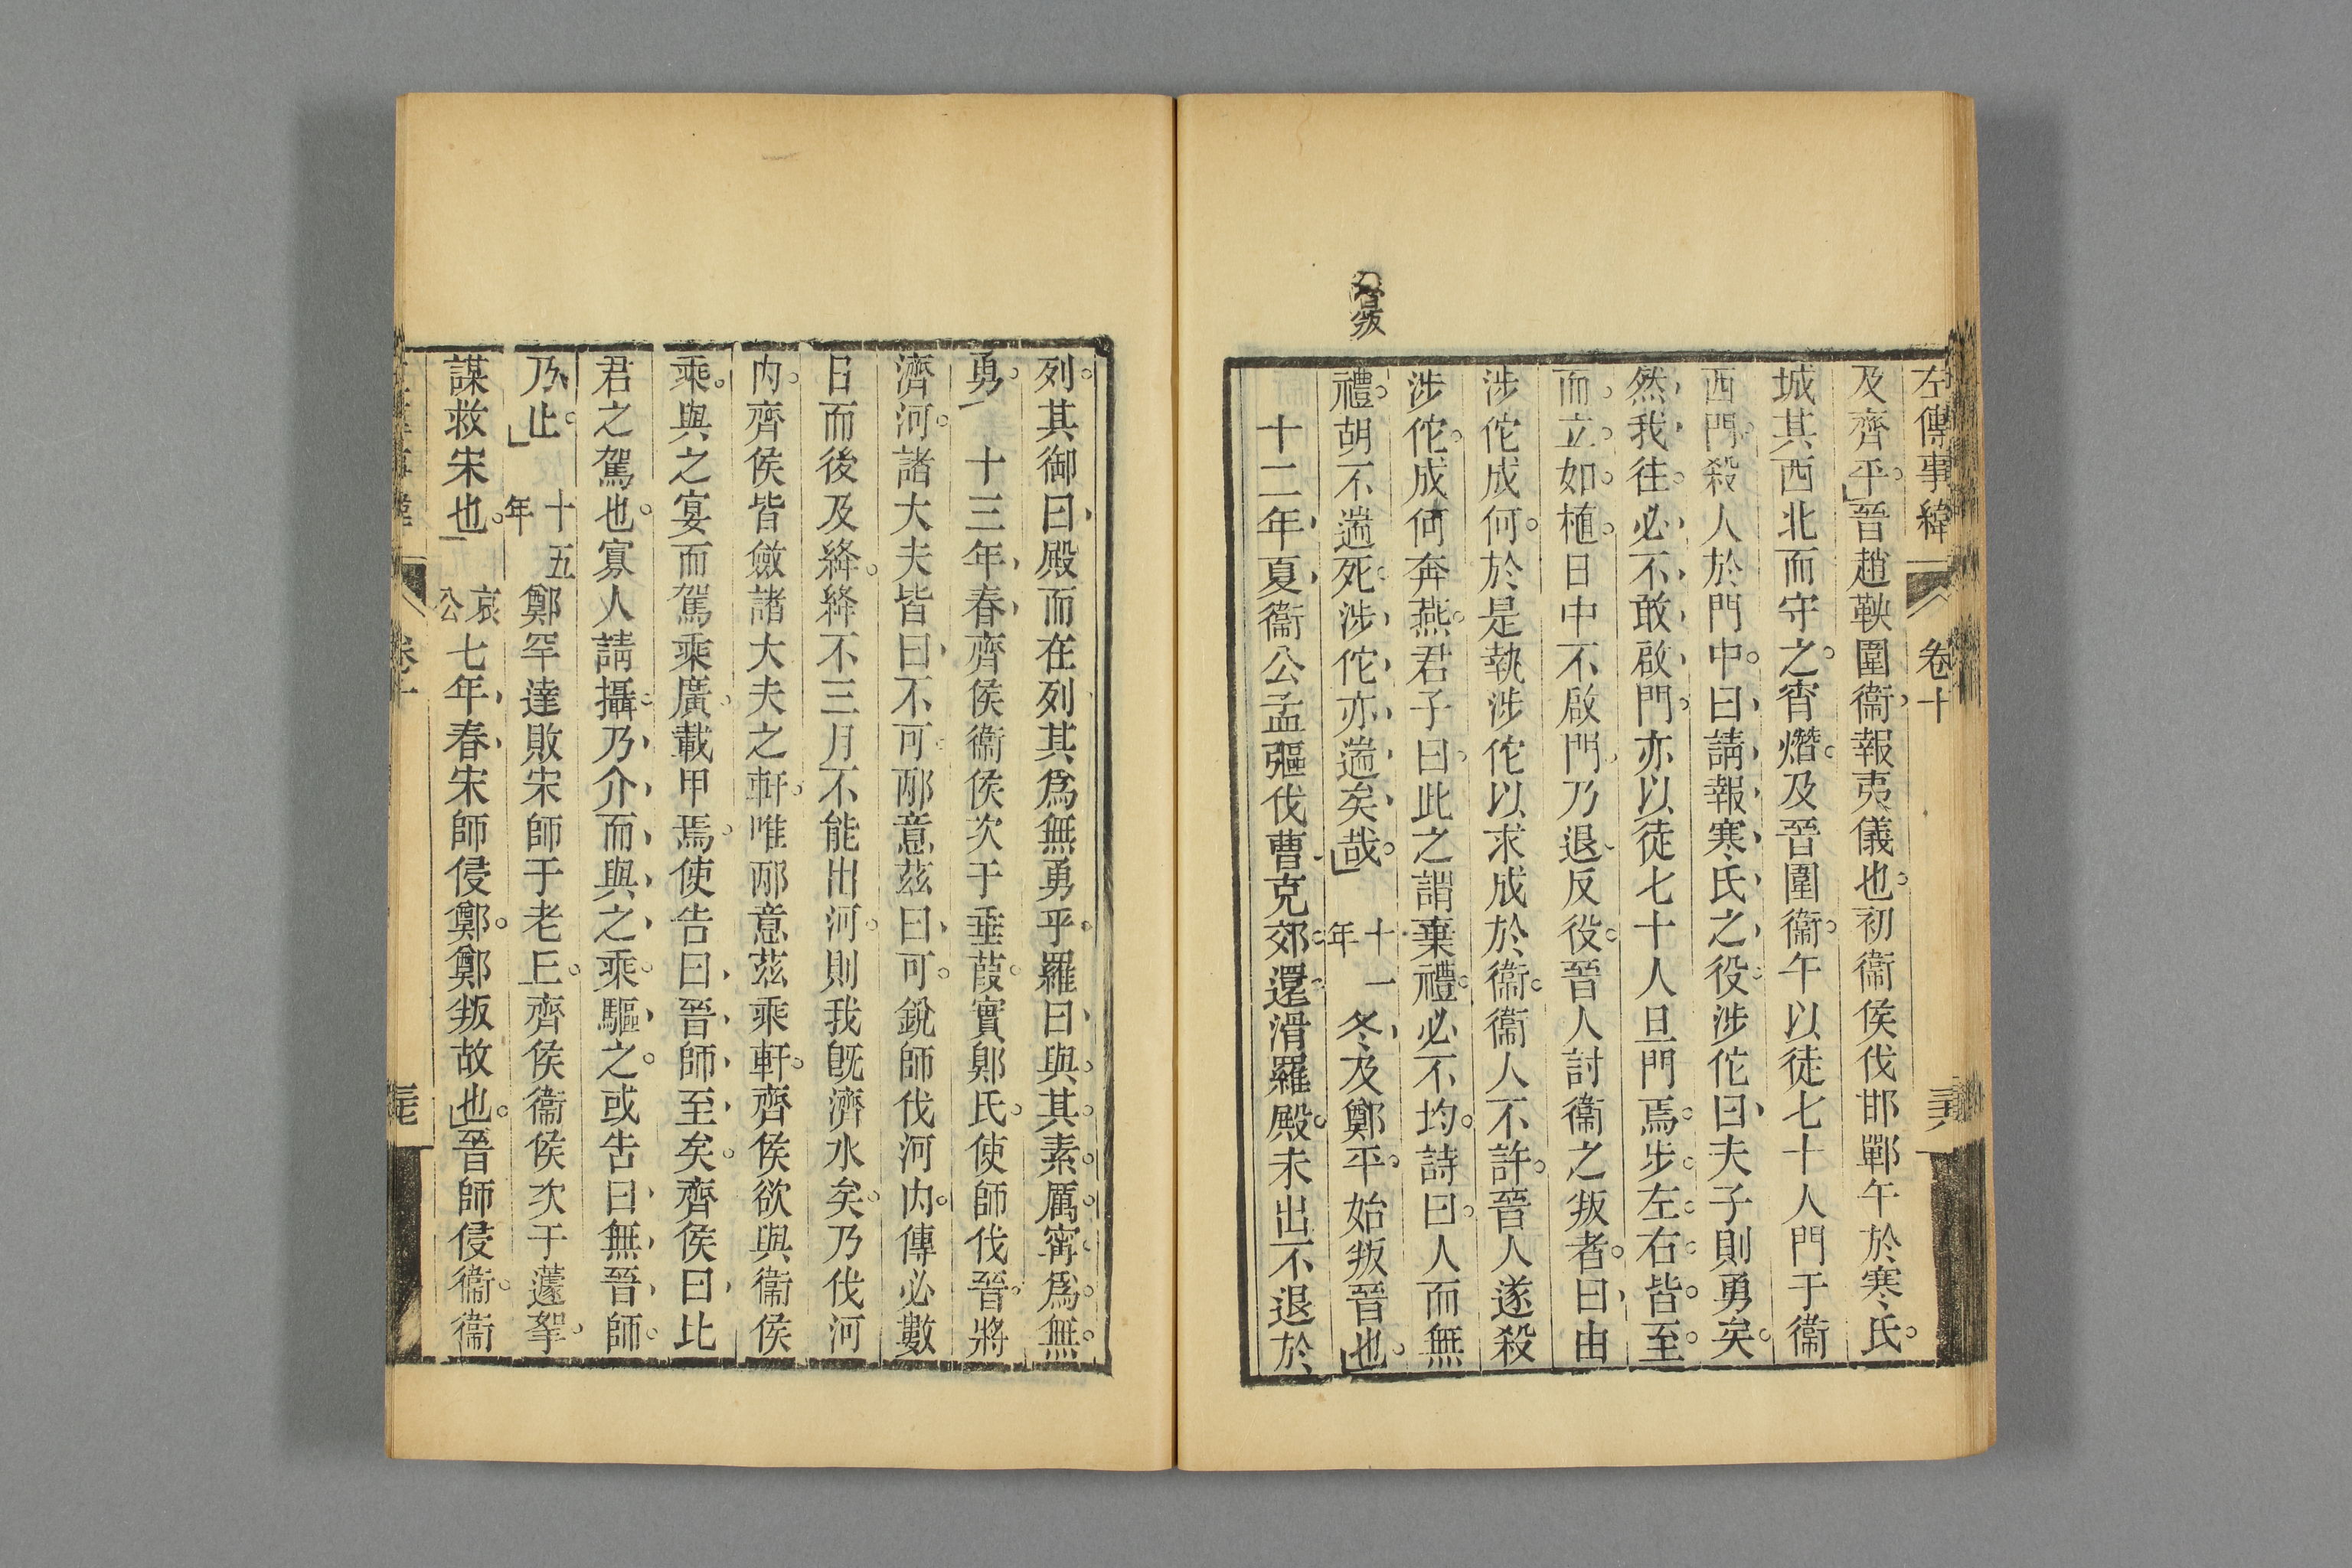 左傳事緯 卷十
及齊平晉趙鞅圍衞報夷儀也初衞侯伐邯鄲午於寒氏
城其西北而守之宵熸及晉圍衞午以徒七十人門于衞
西門殺人於門中曰請報寒氏之役涉佗曰夫子則勇矣
然我往必不敢啟門亦以徒七十人旦門焉步左右皆至
而立如植日中不啟門乃退反役晉人討衞之叛者曰由
涉佗成何於是執涉佗以求成於衞衞人不許晉人遂殺
涉佗成何奔燕君子曰此之謂棄禮必不均詩曰人而無
禮胡不遄死涉佗亦遄矣哉十一年冬及鄭平始叛晉也
十二年夏衞公孟彄伐曹克郊還滑羅殿未出不退於
列其御曰殿而在列其爲無勇乎羅曰與其素厲寧爲無
勇 十三年春齊侯衞侯次于垂葭實郹氏使師伐晉將
濟河諸大夫皆曰不可邴意茲曰可銳師伐河內傳必數
日而後及絳絳不三月不能出河則我旣濟水矣乃伐河
內齊侯皆斂諸大夫之軒唯邴意茲乘軒齊侯欲與衞侯
乘與之宴而駕乘廣載甲焉使告曰晉師至矣齊侯曰比
君之駕也寡人請攝乃介而與之乘驅之或告曰無晉師
乃止 十五年鄭罕達敗宋師于老丘齊侯衞侯次于蘧挐
謀救宋也 哀公七年春宋師侵鄭鄭叛故也晉師侵衞衞